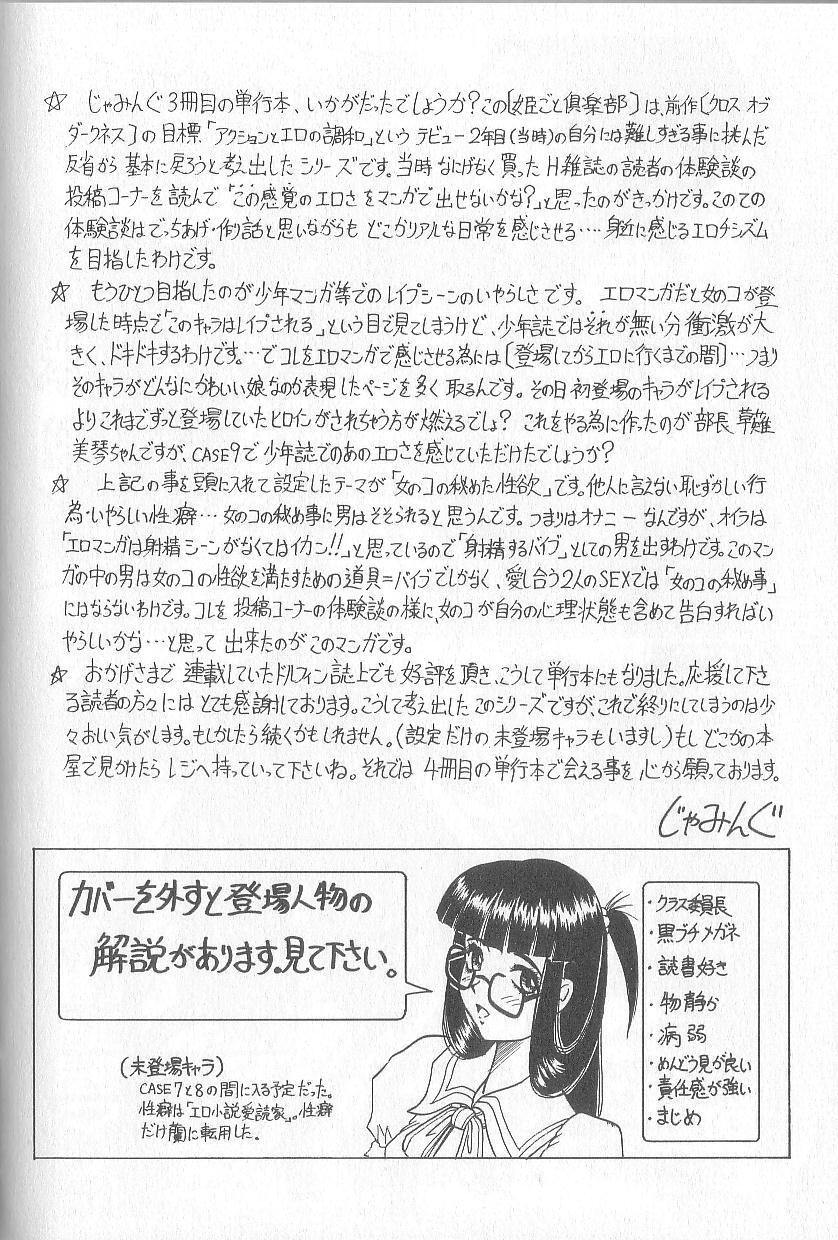 ☆ じゃみんぐ3冊目の単行本、いかがだったでしょうか？この〔姫ごと倶楽部〕は、前作〔クロス オブ
ダークネス〕の目標「アクションとエロの調和」というデビュー2年目(当時)の自分には難しすぎる事に挑んだ
反省から 基本に戻ろうと考え出したシリーズです。当時なにげなく買ったH雑誌の読者の体験談の
投稿コーナーを読んで「この感覚のエロさをマンガで出せないかな？」と思ったのがきっかけです。このての
体験談はでっちあげ・作り話と思いながらも どこかリアルな日常を感じさせる…身近に感じるエロチシズム
を目指したわけです。
☆ もうひとつ目指したのが少年マンガ等でのレイプシーンのいやらしさです。 エロマンガだと女のコが登
場した時点で「このキャラはレイプされる」という目で見てしまうけど、少年誌ではそれが無い分衝激が大
きく、ドキドキするわけです。…でコレをエロマンガで感じさせる為には〔登場してからエロに行くまでの間〕…つまり
そのキャラがどんなにかわいい娘なのか表現したページを多く取るんです。その日初登場のキャラがレイプされる
よりこれまでずっと登場していたヒロインがされちゃう方が燃えるでしょ？ これをやる為に作ったのが部長
美琴ちゃんですが、CASE9で少年誌でのあのエロさを感じていただけたでしょうか？
☆ 上記の事を頭に入れて設定したテーマが「女のコの秘めた性欲」です。他人に言えない恥ずかしい行
為・いやらしい性癖…女のコの秘め事に男はそそられると思うんです。つまりはオナニーなんですが、オイラは
「エロマンガは射精シーンがなくてはイカン!!」と思っているので「射精するバイブ」としての男を出すわけです。このマン
ガの中の男は女のコの性欲を満たすための道具=バイブでしかなく、愛し合う2人のSEXでは「女のコの秘め事」
にはならないわけです。コレを投稿コーナーの体験談の様に、女のコが自分の心理状態も含めて告白すればい
やらしいかな…と思って出来たのがこのマンガです。
☆ おかげさまで連載していたドルフィン誌上でも好評を頂き、こうして単行本にもなりました。応援して下さ
る読者の方々にはとても感謝しております。こうして考え出したこのシリーズですが、これで終りにしてしまうのは少
々おしい気がします。もしかしたら続くかもしれません。(設定だけの未登場キャラもいますし)もしどこかの本
屋で見かけたらレジへ持っていって下さいね。それでは 4冊目の単行本で会える事を心から願っております。
じゃみんぐ
カバーを外すと登場人物の
解説があります。見て下さい。
(未登場キャラ)
CASE7と8の間に入る予定だった。
性癖は「エロ小説愛読家」。性癖
だけ蘭に転用した。
・クラス委員長
・黒ブチメガネ
・読書好き
・物静か
・病弱
・めんどう見が良い
・責任感が強い
・まじめ